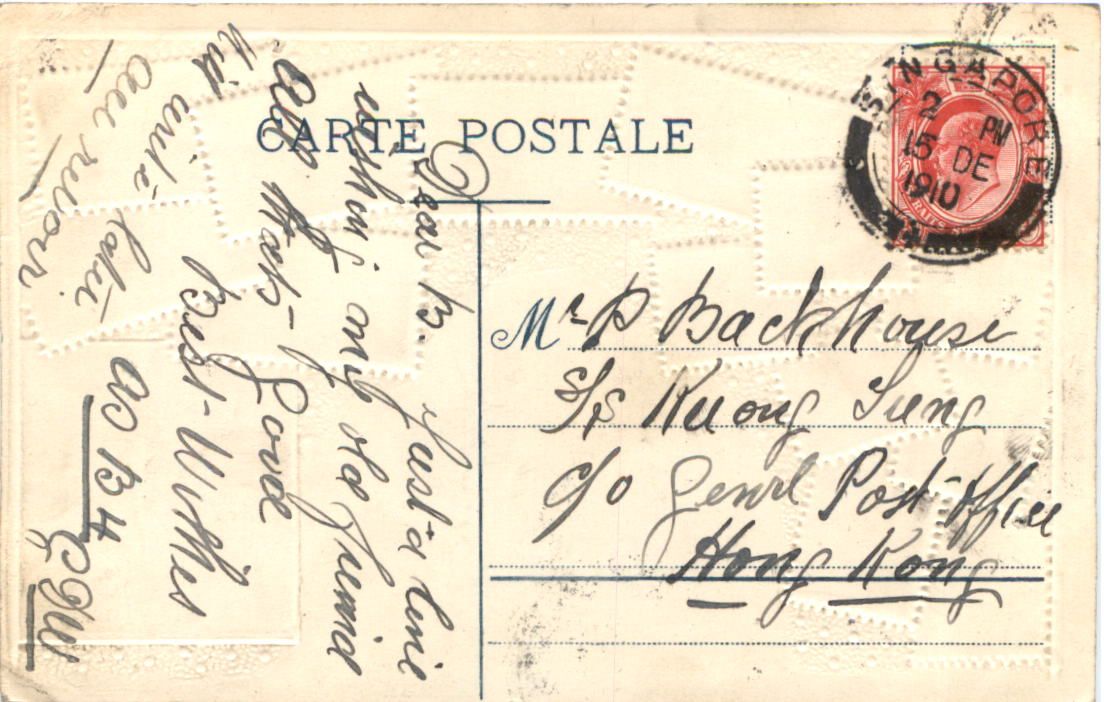 CARTE POSTALE
SINGAPORE
2 PM
15 DE
1910
Dear B. Just a line
wishing my old friend
all that's Good
Best Wishes
Will write later
au revor
as B4
Mr P Backhouse
S/S Kuong Sung
c/o Genrl Post Office
Hong Kong